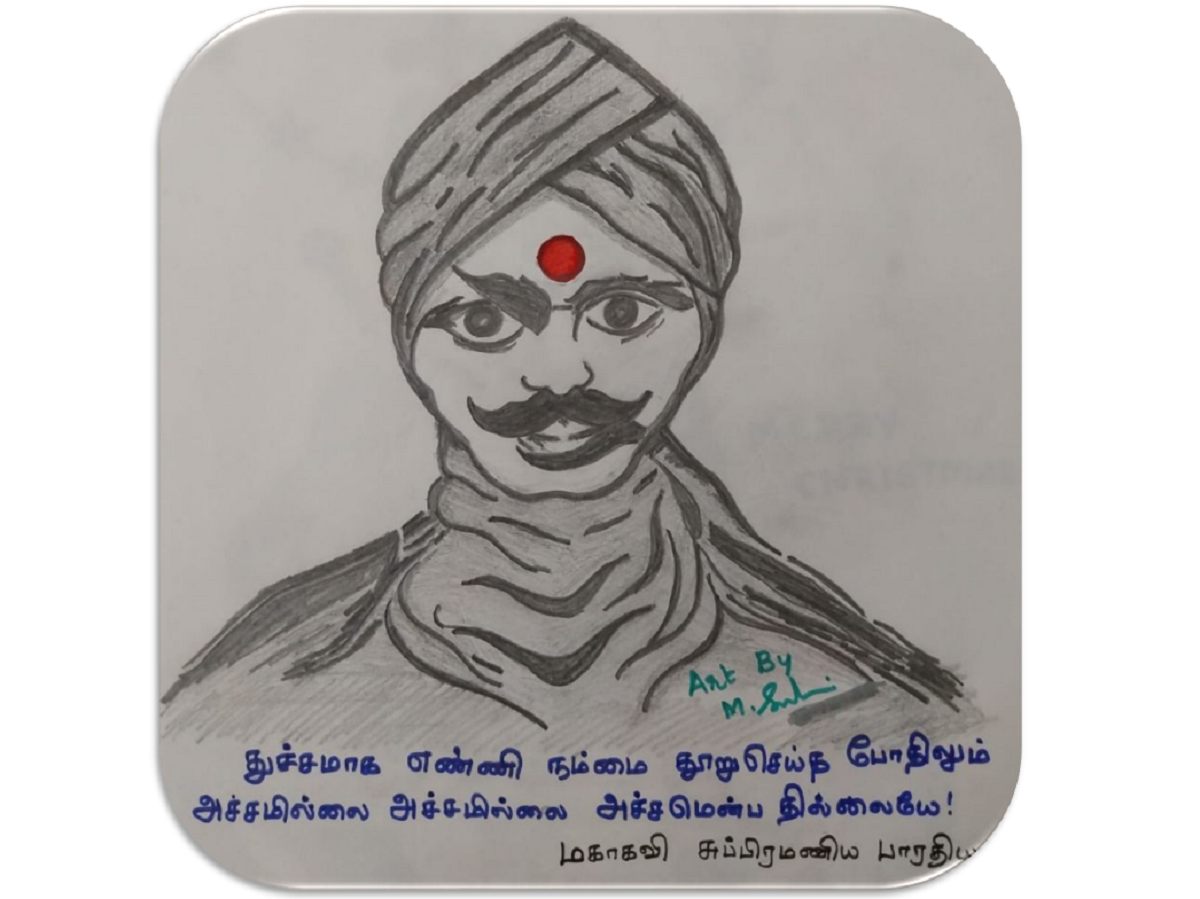 Art By
M.
துச்சமாக எண்ணி நம்மை தூறுசெய்த போதிலும்
அச்சமில்லை அச்சமில்லை அச்சமென்ப தில்லையே!
மகாகவி சுப்பிரமணிய